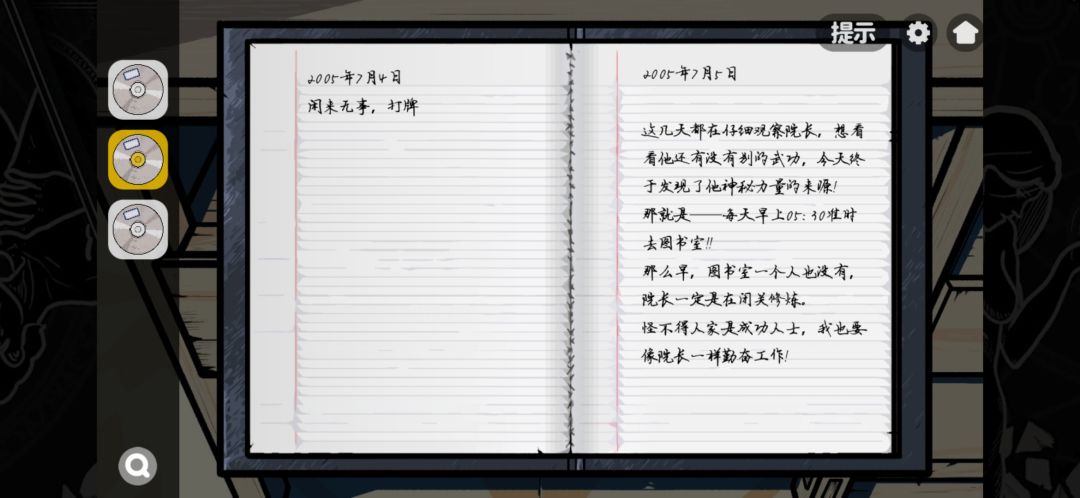 提示
2005年7月4日
闲来无事，打牌
2005年7月5日
这几天都在仔细观察院长，想看
看他还有没有别的武功，今天终
于发现了他神秘力量的来源！
那就是——每天早上05：30准时
去图书室！！
那么早，图书室一个人也没有，
院长一定是在闭关修炼。
怪不得人家是成功人士，我也要
像院长一样勤奋工作！